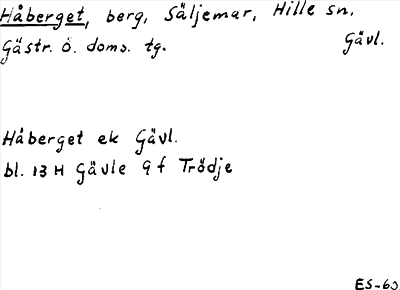 Håberget, berg, Säljemar, Hille sn.
Gästr. ö. doms. tg. Gävl.
Håberget ek Gävl.
bl. 13 H Gävle 9 f Trödje
ES-63